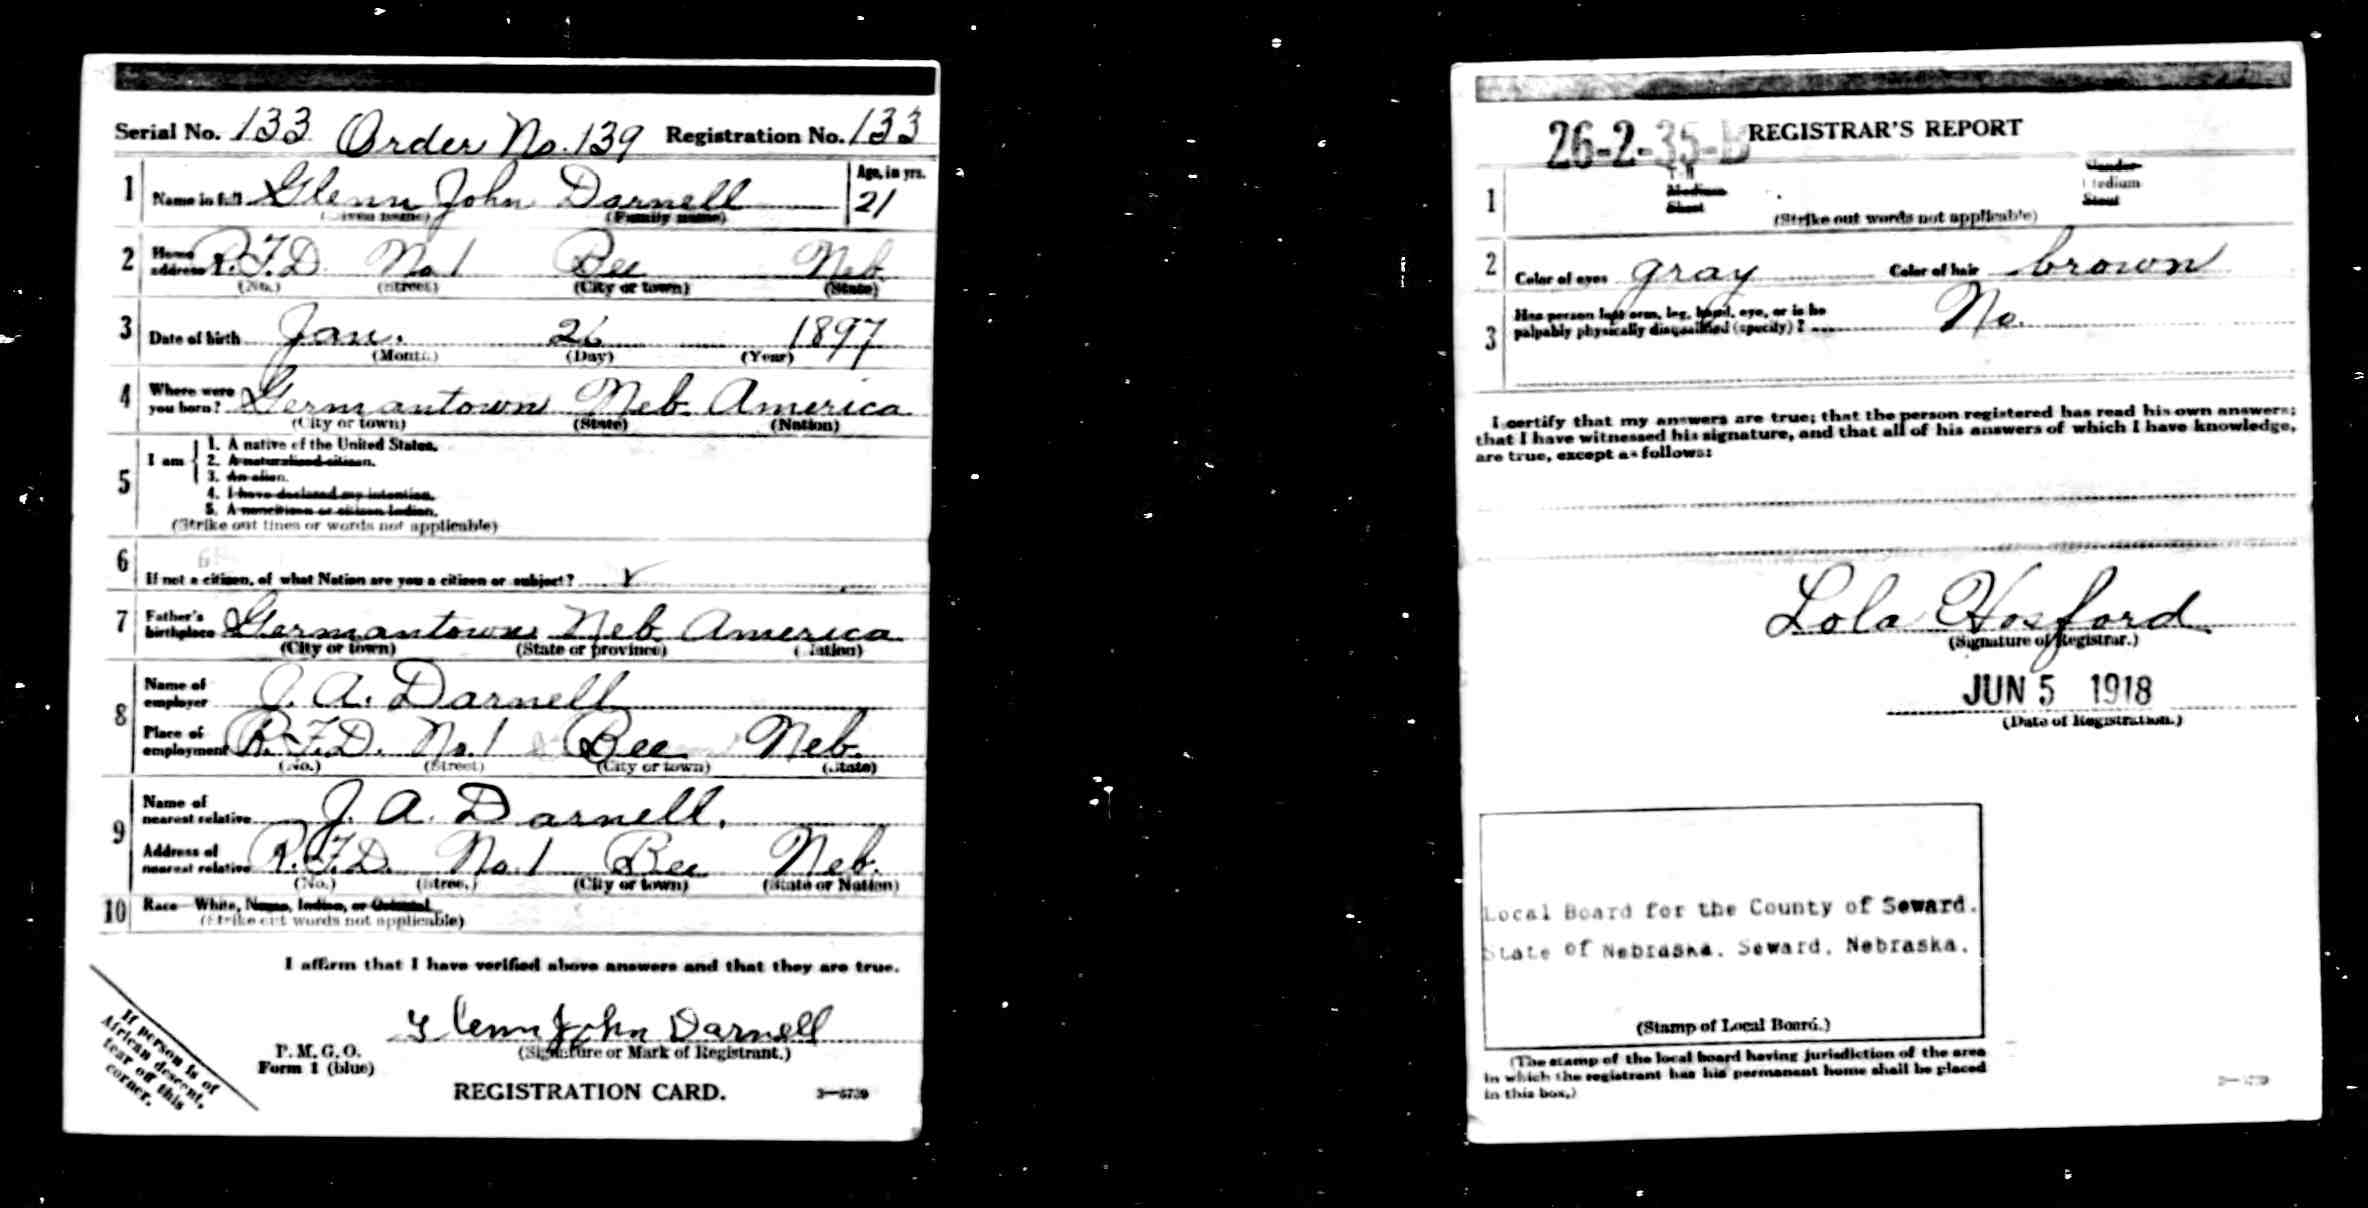 Serial No. 133 Order No. 139 Registration No. 133
1 Name in full Glenn John Darnell Age, in yrs. 21
(Given name) (Family name)
2 Home address R.F.D. No. 1 Bee Neb.
(No.) (Street) (City or town) (State)
3 Date of birth Jan. 26 1897
(Month) (Day) (Year)
4 Where were you born? Germantown Neb. America
(City or town) (State) (Nation)
5 I am
1. A native of the United States.
2. A naturalized citizen.
3. An alien.
4. I have declared my intention.
5. A noncitizen or citizen Indian.
(Strike out lines or words not applicable)
6 If not a citizen, of what Nation are you a citizen or subject?
7 Father's birthplace Germantown Neb. America
(City or town) (State or province) (Nation)
8 Name of employer J. A. Darnell
Place of employment R.F.D. No. 1 Bee Neb.
(No.) (Street) (City or town) (State)
9 Name of nearest relative J. A. Darnell.
Address of nearest relative R.F.D. No. 1 Bee Neb.
(No.) (Street) (City or town) (State or Nation)
10 Race—White, Negro, Indian, or Oriental
(Strike out words not applicable)
I affirm that I have verified above answers and that they are true.
Glenn John Darnell
(Signature or Mark of Registrant.)
P. M. G. O.
Form 1 (blue)
REGISTRATION CARD.
3—6739
If person is of
African descent,
tear off this
corner.
26-2-35-B REGISTRAR'S REPORT
1 Tall Slender
Medium Medium
Short Stout
(Strike out words not applicable)
2 Color of eyes gray Color of hair brown
3 Has person lost arm, leg, hand, eye, or is he
palpably physically disqualified (specify)? No.
I certify that my answers are true; that the person registered has read his own answers;
that I have witnessed his signature, and that all of his answers of which I have knowledge,
are true, except as follows:
Lola Hosford
(Signature of Registrar.)
JUN 5 1918
(Date of Registration.)
Local Board for the County of Seward.
State of Nebraska. Seward, Nebraska.
(Stamp of Local Board.)
(The stamp of the local board having jurisdiction of the area
in which the registrant has his permanent home shall be placed
in this box.)
3—6739